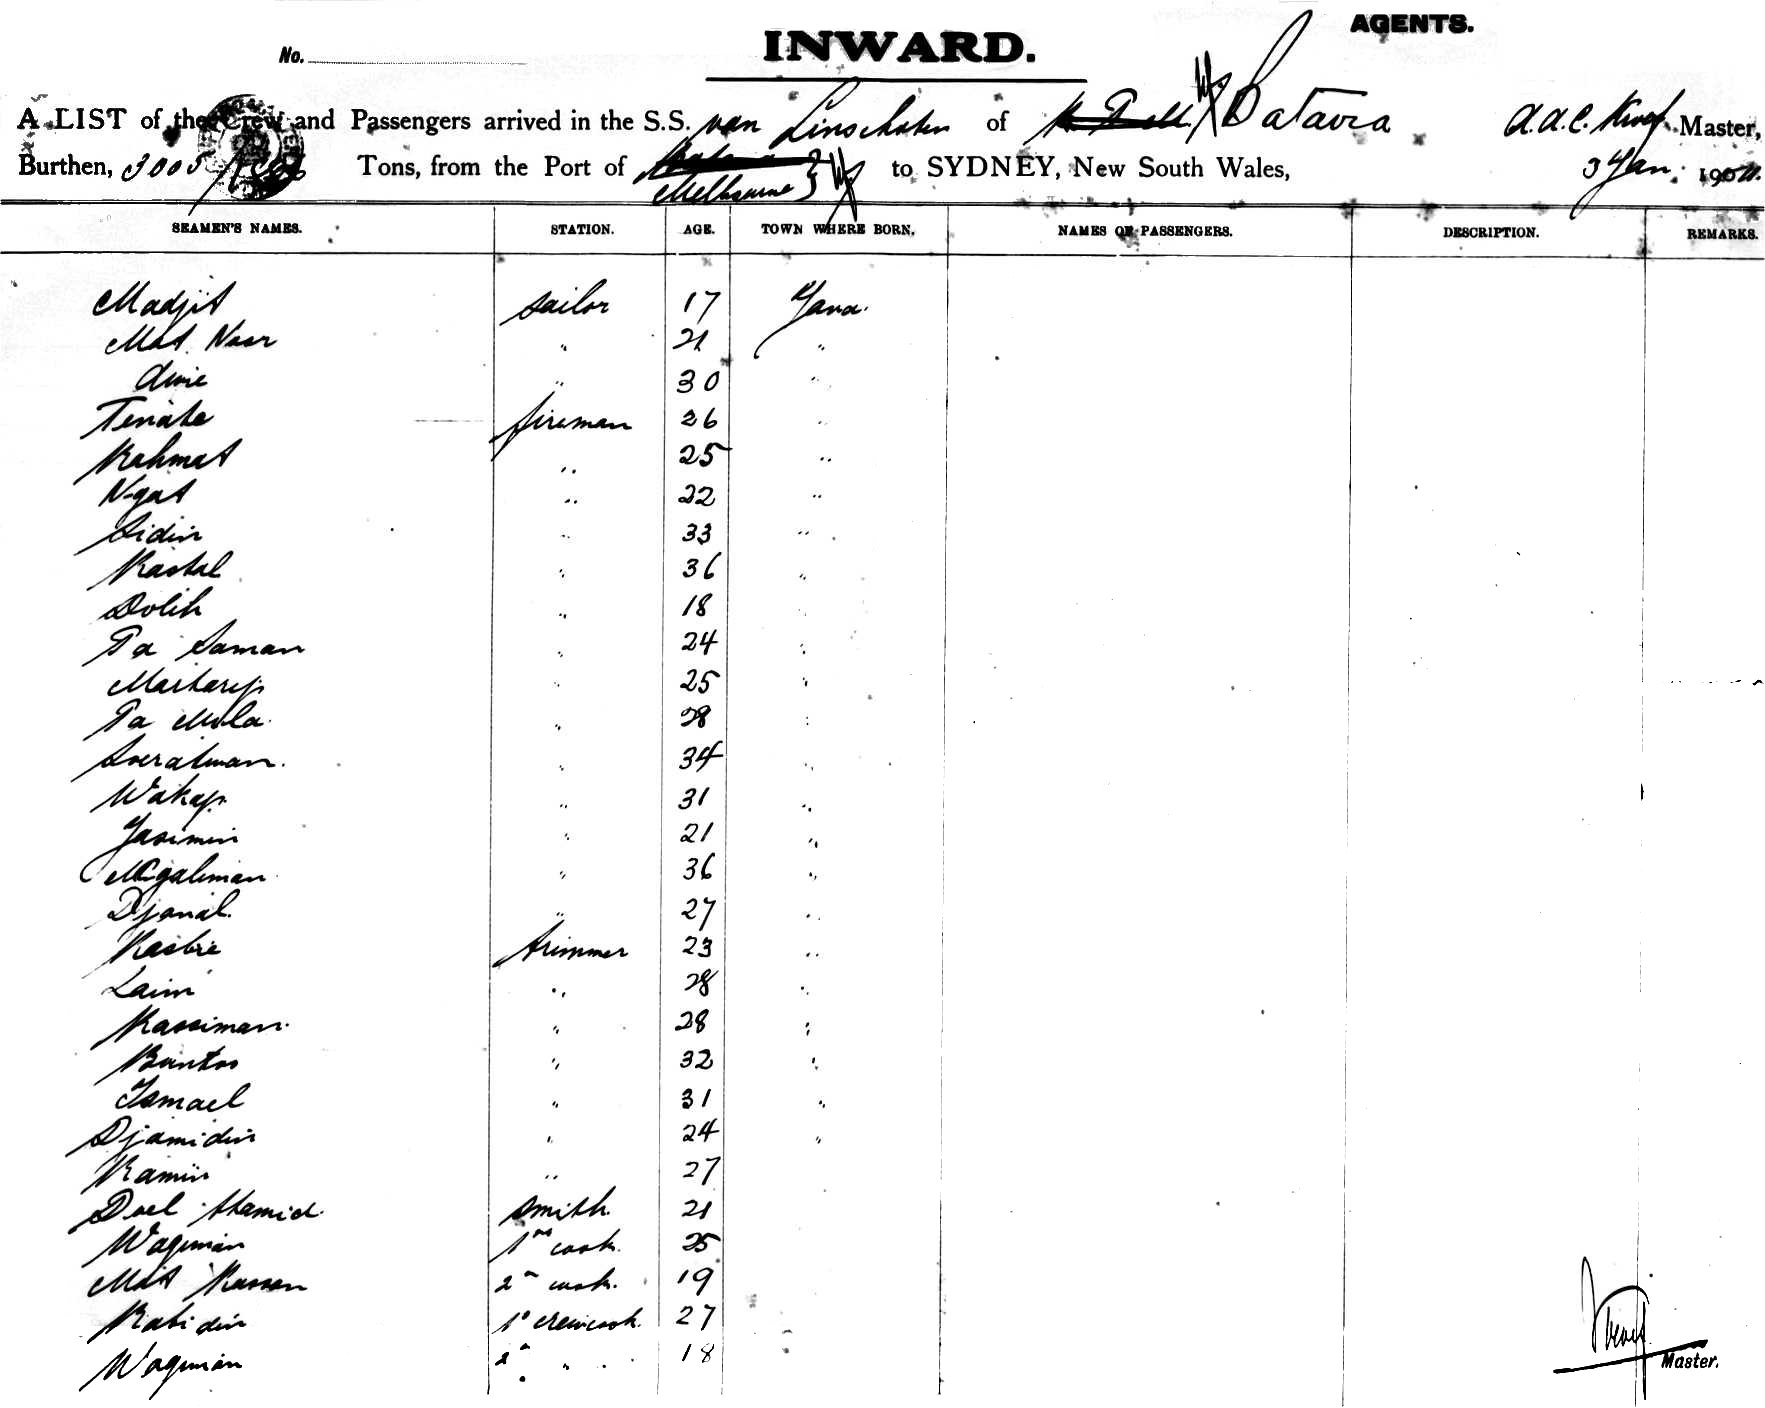 AGENTS.
No.
INWARD.
A LIST of the Crew and Passengers arrived in the S.S. van Linschoten of Batavia A.A.C. Master,
Burthen, 3005 Tons, from the Port of Melbourne to SYDNEY, New South Wales, 3 Jan. 190
SEAMEN'S NAMES. STATION. AGE. TOWN WHERE BORN. NAMES OF PASSENGERS. DESCRIPTION. REMARKS.
Madjit sailor 17 Java.
Mat Noer " 21 "
Amie " 30 "
Tenake fireman 26 "
Rahmat " 25 "
Ngat " 22 "
Sidin " 33 "
Kastal " 36 "
Dolih " 18 "
Pa Saman " 24 "
Markarip " 25 "
Pa Mula " 28 "
Soeratman " 34 "
Wakap " 31 "
Jasimin " 21 "
Ngaliman " 36 "
Djanal " 27 "
Kasbie trimmer 23 "
Laim " 28 "
Kassiman " 28 "
Bantos " 32 "
Ismael " 31 "
Djamidin " 24 "
Ramin " 27
Doel Hamid smith 21
Wagiman 1st cook 25
Mat Kassan 2n cook 19
Kabidin 1e crewcook 27
Wagiman 2n " 18
Master.